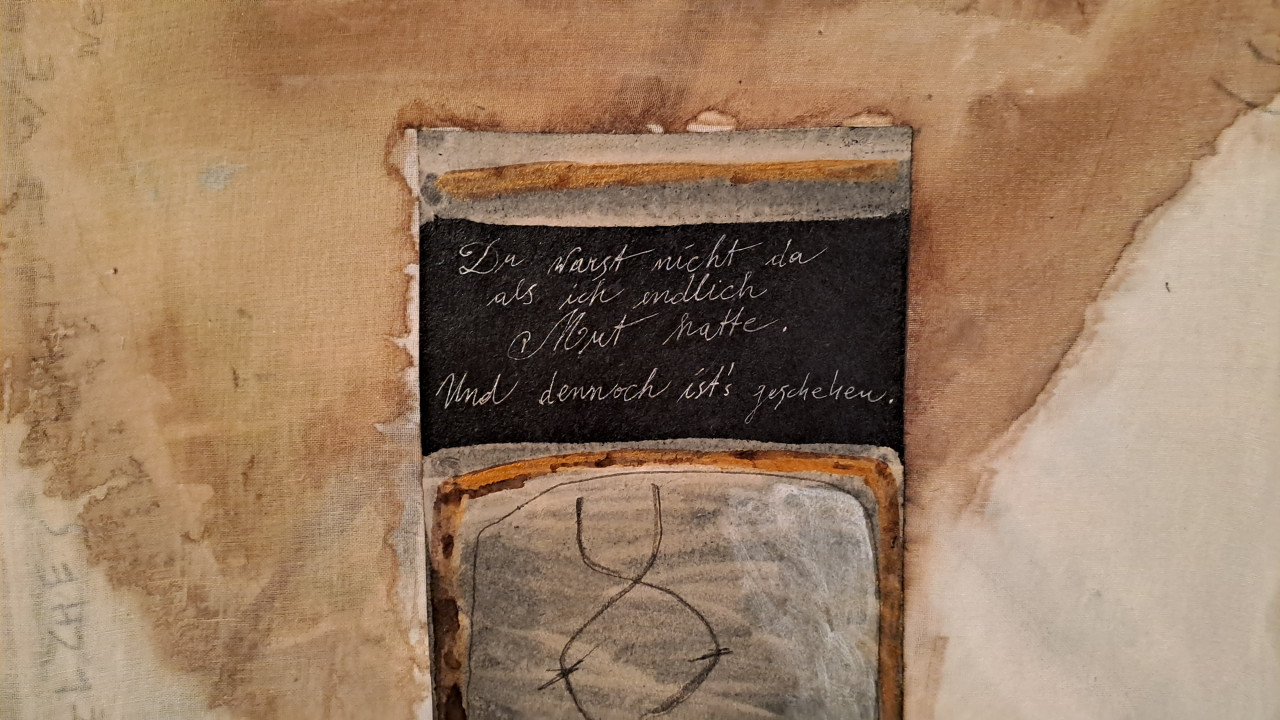 Du warst nicht da
als ich endlich
Mut hatte.
Und dennoch ist's geschehen.